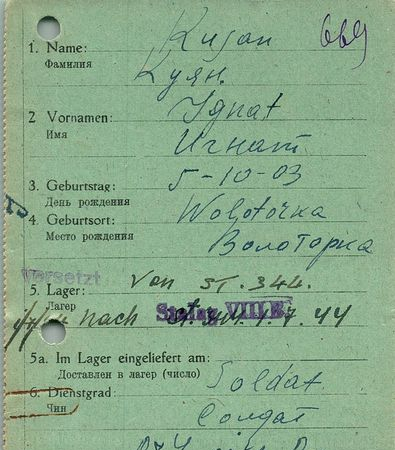 669
1. Name: Kujan
Фамилия Куян.
2 Vornamen: Ignat
Имя Игнат
3. Geburtstag: 5-10-03
День рождения
4. Geburtsort: Wolotorka
Место рождения Волоторка
Versetzt
5. Lager: von St. 344.
Лагер
nach Stalag VIII E 1.7.44
5a. Im Lager eingeliefert am:
Доставлен в лагер (число)
6. Dienstgrad: Soldat
Чин Солдат